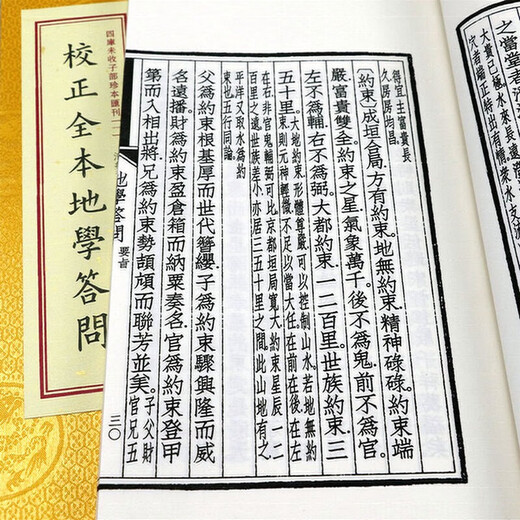 之當堂者
大貴已極水來長遠
穴者端正特出有
衆水支流
得宜主富貴長
久房房均昌
〔約束〕成垣合局。方有約束。地無約束。精神碌碌。約束端
嚴富貴雙全。約束之星。氣象萬千。後不爲鬼。前不爲官。
左不爲輔。右不爲弼。大都約束。一二百里。世族約束。三
五十里。
大地約束形體尊嚴可以控制山水。若地無約
束則元神輕微不足以當大任。在前在後在左
在右非官鬼輔弼可比京都垣局寬大約束星辰一二
百里之遠世族差小亦居三五十里之間。此山地有之
平洋又取水爲約
束也五行同論
父爲約束根基厚而世代簪纓。子爲約束驟興隆而威
名遠播。財爲約束盈倉箱而納粟奏名。官爲約束登甲
第而入相出將。兄爲約束勢頡頏而聯芳並美。
子父財
官兄五
地學答問 要旨
三〇
四庫未收子部珍本匯刊
校正全本地學答問